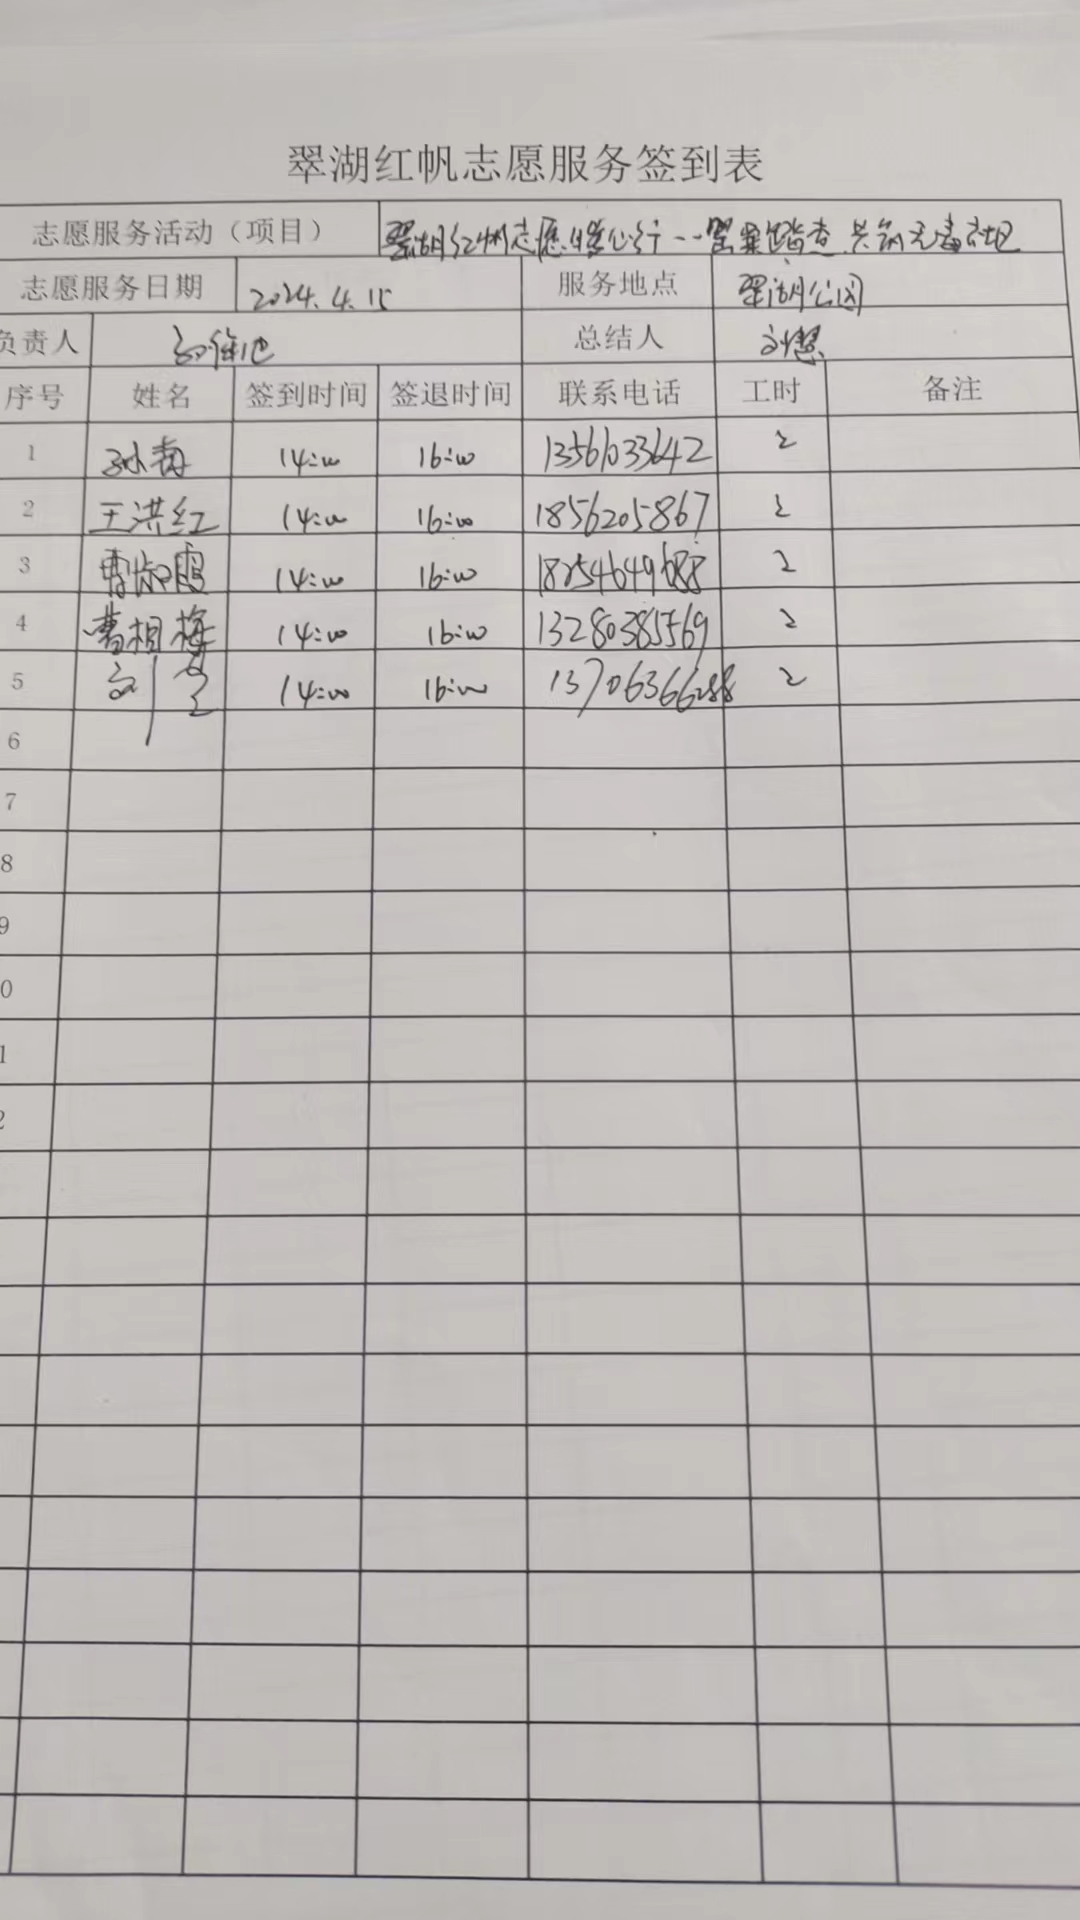 翠湖红帆志愿服务签到表
志愿服务活动（项目） 翠湖红帆志愿 罂粟踏查 共筑无毒社区
志愿服务日期 2024.4.15 服务地点 翠湖公园
负责人 总结人 刘慧
序号 姓名 签到时间 签退时间 联系电话 工时 备注
1 14:00 16:00 13561033642 2
2 王洪红 14:00 16:00 18562058867 2
3 曹淑霞 14:00 16:00 18254649688 2
4 曹相梅 14:00 16:00 13280385569 2
5 14:00 16:00 13706366288 2
6
7
8
9
0
1
2